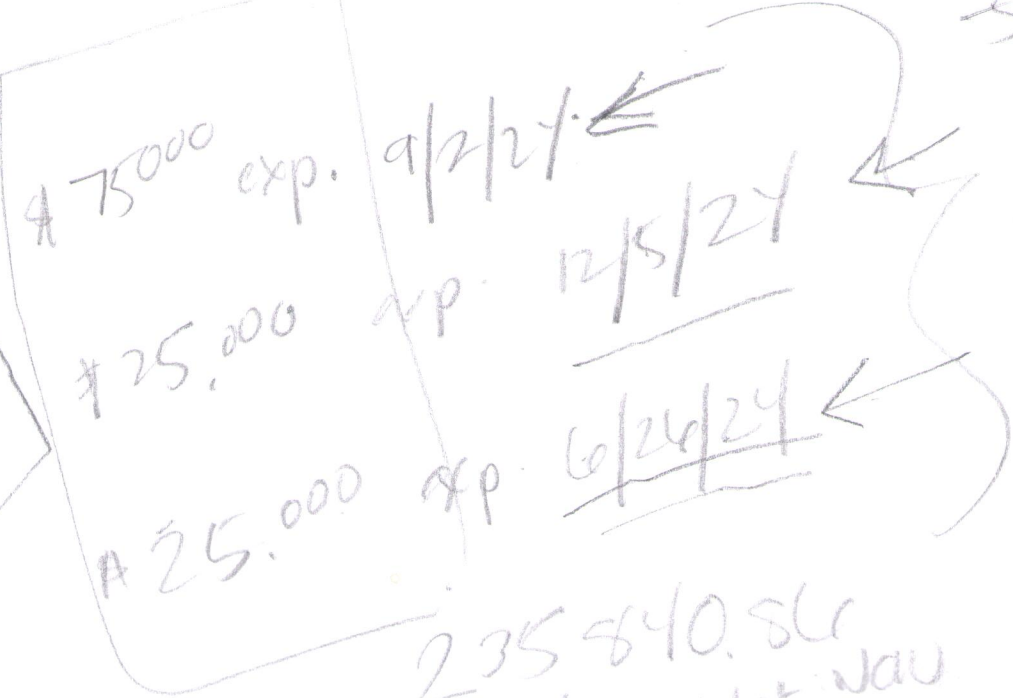 $ 75000 exp. 9/2/24
$ 25,000 exp. 12/5/24
$ 25.000 exp. 6/26/24
235 840.86